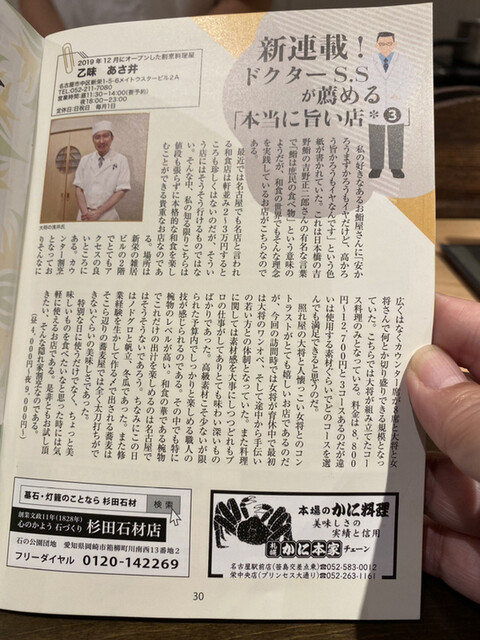 2019年12月にオープンした割烹料理屋
乙味 あさ井
名古屋市中区新栄1-5-6メイトウスタービル2A
TEL:052-211-7080
営業時間:昼11:30〜14:00(要予約)
夜18:00〜23:00
定休日:日祝日 毎月1日
新連載!
ドクターS.S
が薦める
「本当に旨い店*③」
大将の浅井氏
「私の好きなあるお鮨屋さんに『安か
ろうまずかろうもイヤだけど、高かろ
う旨かろうもイヤなんです』という色
紙が書かれていた。これは日本橋の吉
野鮨の吉野正二郎さんの有名な言葉
で『鮨は庶民の食べ物』という意味の
ようだが、和食の世界でもそんな理念
を実践しているお店がこちらなので
ある。
最近では名古屋でも名店と言われ
る和食店は軒並み2〜3万円すると
ころも珍しくはないのだが、そうい
う店にはそうそう行けるものではな
い。そんな中、私の知る限りこちらは
値段も張らずに本格的な和食を楽し
むことができる貴重なお店なので
ある。場所は
新栄の雑居
ビルの2階
でとてもア
クセスの良
いところに
ある。カウ
ンター割烹
となってお
りそんなに
広くはなくカウンター席が8席と大将と女
将さんで何とか切り盛りできる規模となっ
ていた。こちらでは大将が組み立てたコー
ス料理のみとなっている。料金は8,800
円〜12,700円と3コースあるのだが違
いは使用する素材くらいでどのコースを選
んでも満足できると思うのだ。
照れ屋の大将と人懐っこい女将とのコン
トラストがとても嬉しいお店であるのだ
が、今回の訪問時では女将が育休中で最初
は大将のワンオペ、そして途中から手伝い
の若い方との体制となっていた。また料理
に関しては素材感を大事にしつつどれもプ
ロの仕事がしてありとても味わい深いもの
ばかりであった。高級素材こそ少ないが限
られた予算内でしっかりと楽しめる職人の
技が感じられるのである。その中でも特に
椀物のレベルが高い。和食の華である椀物
でこれだけの出汁を楽しめるのは名古屋で
はそうそうないである。ちなみにこの日
はノドグロと帆立、冬瓜であった。また修
業経験を生かして作る〆で出される蕎麦は
そこら辺りの蕎麦屋ではとても太刀打ちがで
きないくらいの美味しさであった。
特別な日に使うだけでなく、ちょっと美
味しいものを食べたいなと思った時には気
軽に使えるお店である。是非ともお試し頂
きたい、そんな隠れ家割烹なのである。
(昼4,000円〜 夜9,000円〜)
墓石・灯籠のことなら 杉田石材 検索
創業文政11年(1828年)
心のかよう 石づくり 杉田石材店
石の公園団地 愛知県岡崎市箱柳町川南西13番地2
フリーダイヤル 0120-142269
本場のかに料理
美味しさの
実績と信用
札幌 かに本家 チェーン
名古屋駅前店(笹島交差点東)☎052-583-0012
栄中央店(プリンセス大通り)☎052-263-1161
30